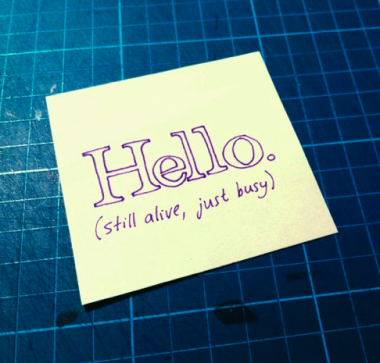 Hello.
(still alive, just busy)